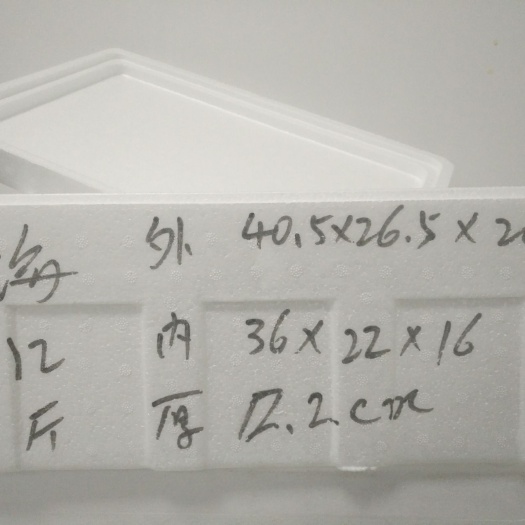 海 外 40.5×26.5×2
12 内 36×22×16
斤 厚 2.2cm